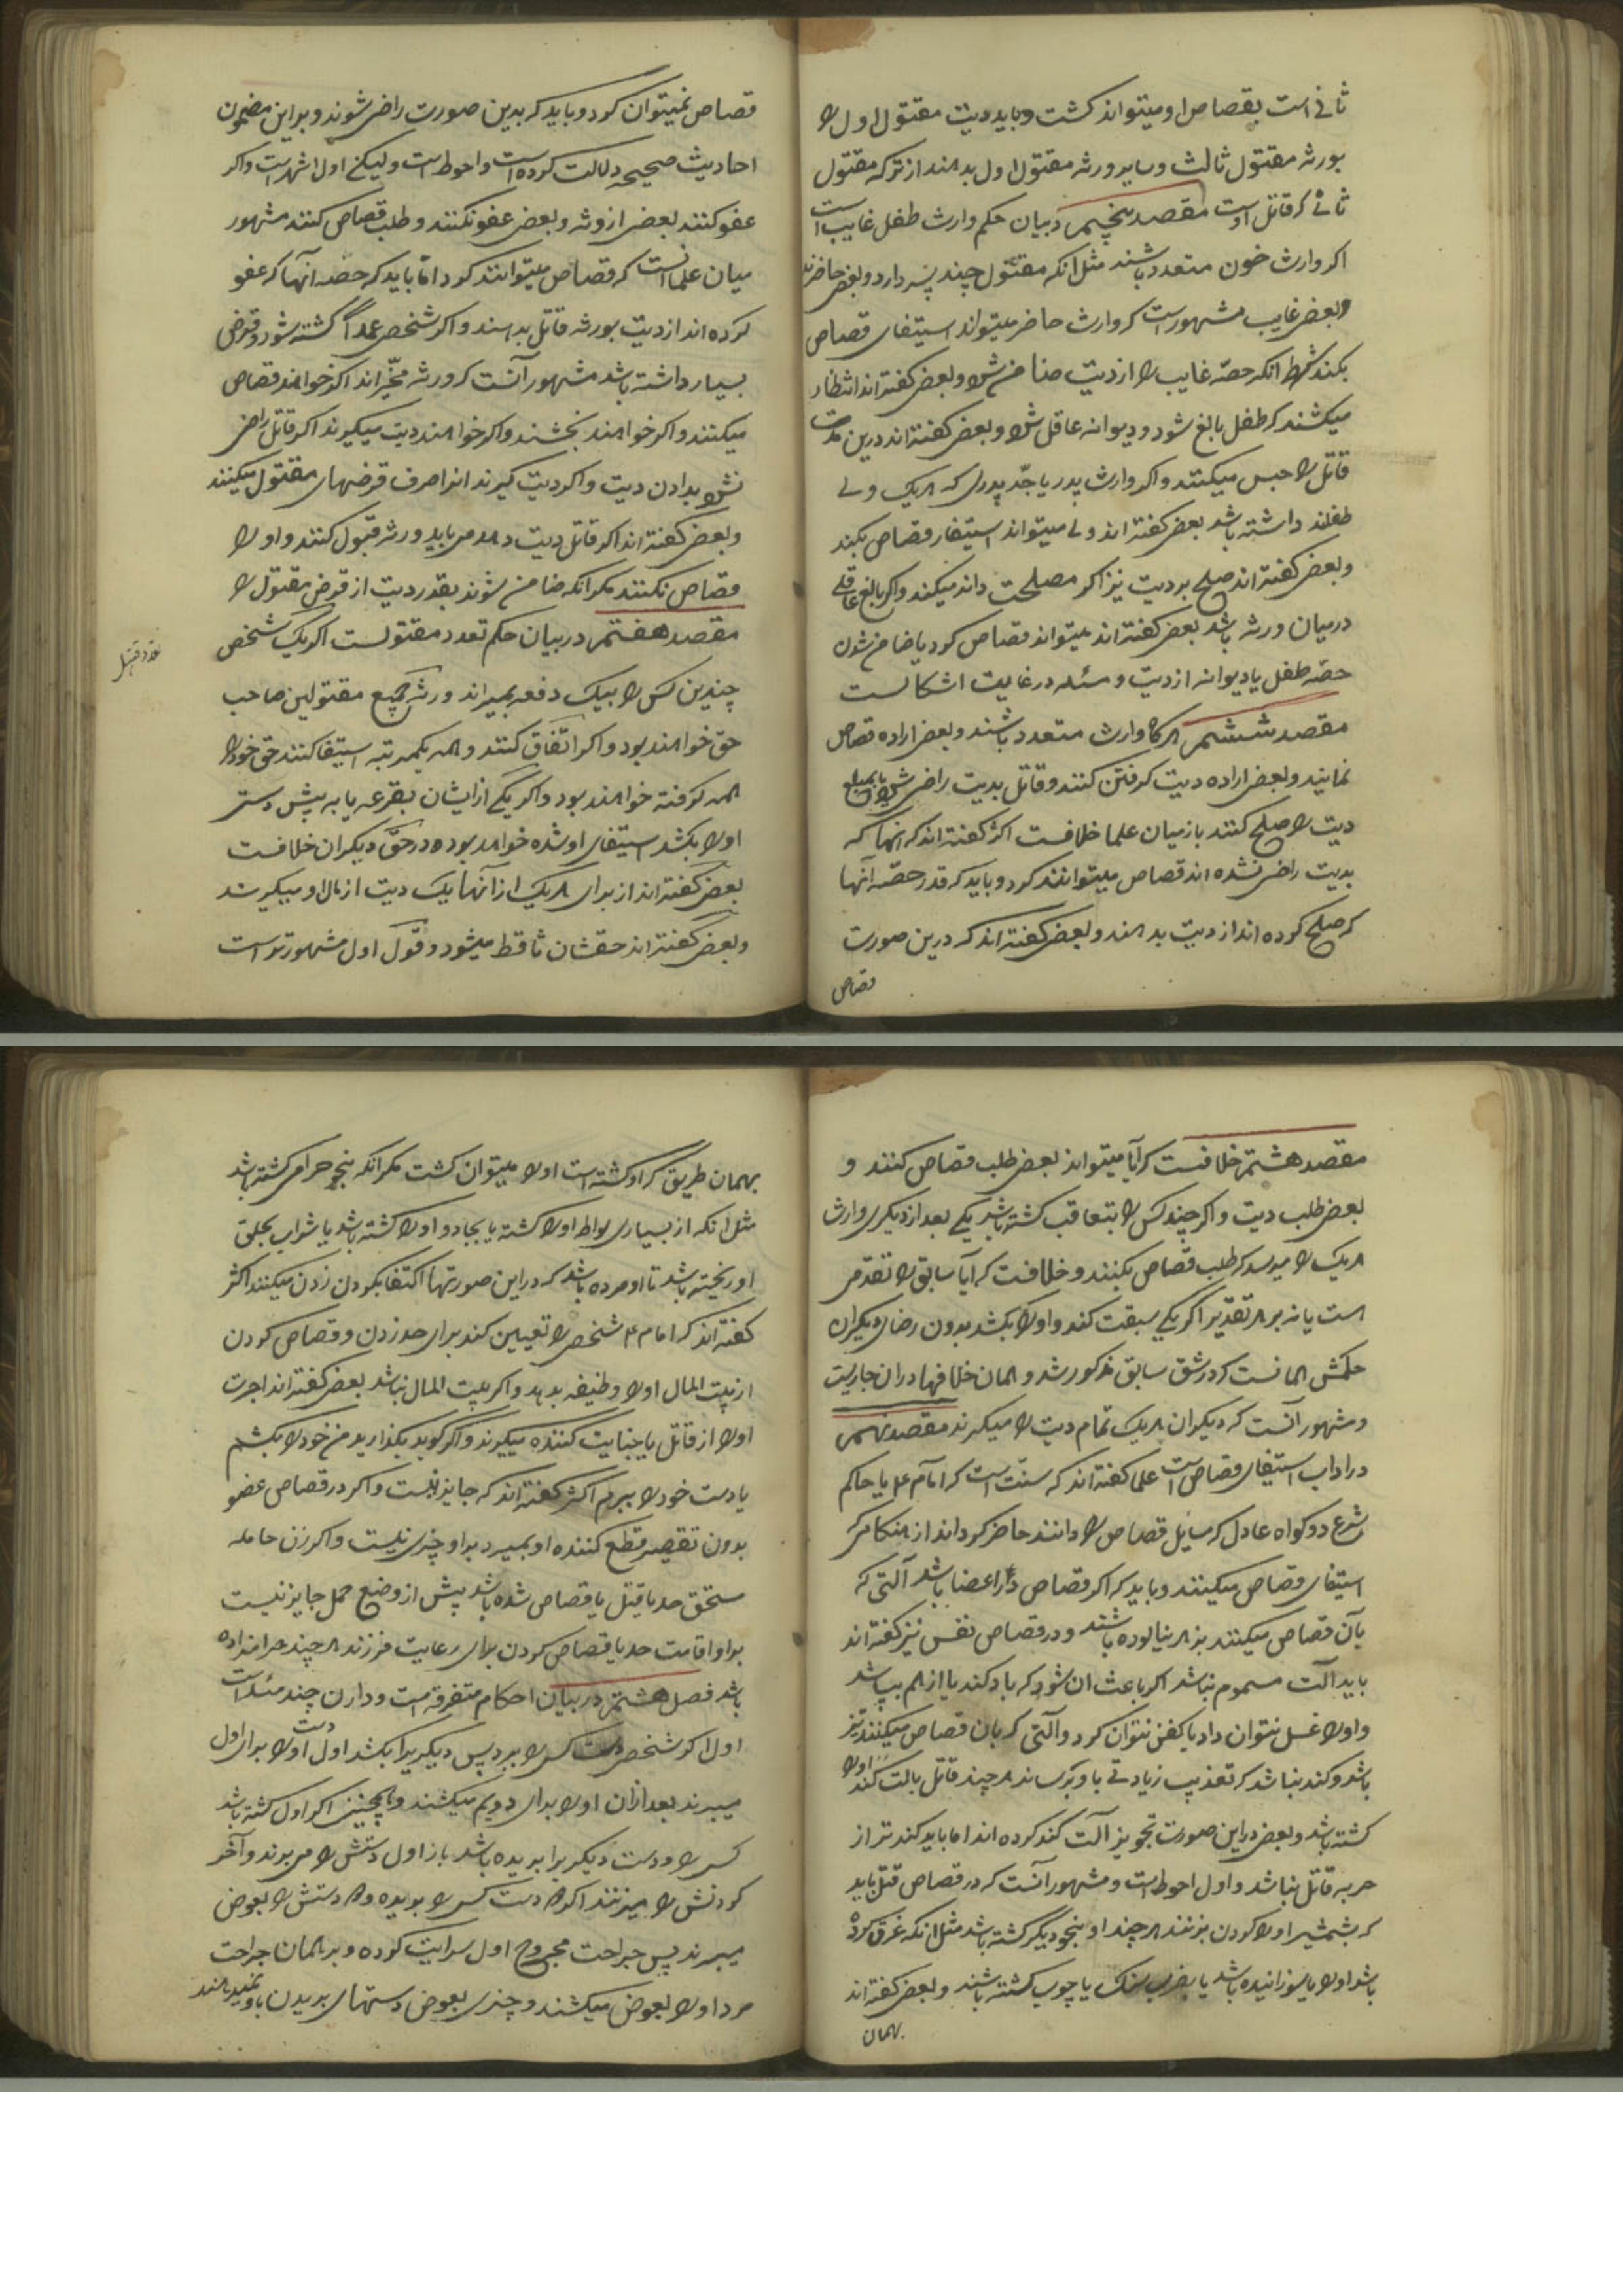 ثانی است بقصاص او میتواند کشت و باید دیت مقتول اول را
بورثه مقتول ثالث و سایر ورثه مقتول اول بدهند از ترکه مقتول
ثانی که قاتل اوست مقصد پنجم در بیان حکم وارث طفل غایب است
اکر وارث خون متعدد باشند مثل انکه مقتول چند پسر دارد و بعضی حاضرند
و بعضی غایب مشهور است که وارث حاضر میتواند استیفای قصاص
بکند بشرط انکه حصّه غایب را از دیت ضامن شود و بعضی کفته اند انتظار
میکشند که طفل بالغ شود و دیوانه عاقل شود و بعضی کفته اند درین مدت
قاتل را حبس میکنند و اکر وارث پدر یا جدّ پدری که هر یک ولی
طفلند داشته باشد بعضی کفته اند ولی میتواند استیفاء قصاص بکند
و بعضی کفته اند صلح بر دیت نیز اکر مصلحت داند میکند و اکر بالغ عاقلی
درمیان ورثه باشد بعضی کفته اند میتواند قصاص کرد با ضامن شدن
حصّه طفل یا دیوانه از دیت و مسئله در غایت اشکالست
مقصد ششم هرکاه وارث متعدد باشند و بعضی اراده قصاص
نمایند و بعضی اراده دیت کرفتن کنند و قاتل بدیت راضی شود یا بمبلغ
دیت را صلح کنند باز میان علما خلافست اکثر کفته اند که انها که
بدیت راضی نشده اند قصاص میتوانند کرد و باید که قدر حصّه آنها
که صلح کرده اند از دیت بدهند و بعضی کفته اند که درین صورت
قصاص
قصاص نمیتوان کرد و باید که بدین صورت راضی شوند و براین مضمون
احادیث صحیحه دلالت کرده است و احوط است ولیکن اول اشهر است و اکر
عفو کنند بعضی از ورثه و بعضی عفو نکنند و طلب قصاص کنند مشهور
میان علما انست که قصاص میتوانند کرد امّا باید که حصّه آنها که عفو
کرده اند از دیت بورثه قاتل بدهند و اکر شخصی عمداً کشته شود و قرض
بسیار داشته باشد مشهور آنست که ورثه مخیّر اند اکر خواهند قصاص
میکنند و اکر خواهند بخشند و اکر خواهند دیت میکیرند اکر قاتل راضی
شود بدادن دیت و اکر دیت کیرند انرا صرف قرضهای مقتول میکنند
و بعضی کفته اند اکر قاتل دیت دهد می باید ورثه قبول کنند و او را
قصاص نکنند مکر انکه ضامن شوند بقدر دیت از قرض مقتول را
مقصد هفتم در بیان حکم تعدد مقتولست اکر یک شخص
چندین کس را بیک دفعه بمیراند ورثه جمیع مقتولین صاحب
حق خواهند بود و اکر اتفاق کنند و همه یکمرتبه استیفا کنند حق خود را
همه کرفته خواهند بود و اکر یکی از ایشان بقرعه یا به پیش دستی
او را بکشد استیفای او شده خواهد بود و در حقّ دیکران خلافست
بعضی کفته اند از برای هر یک از آنها یک دیت از مال او میکیرند
و بعضی کفته اند حقشان ثاقط میشود و قول اول مشهورتر است
مقصد هشتم خلافست که آیا میتواند بعضی طلب قصاص کنند و
بعضی طلب دیت و اکر چند کس را بتعاقب کشته باشد یکی بعد از دیکری وارث
هر یک را میرسد که طلب قصاص بکنند و خلافست که آیا سابق را تقدمی
است یا نه بر هر تقدیر اکر یکی سبقت کند و او را بکشد بدون رضای دیکران
حکمش همانست که در شق سابق مذکور شد و همان خلافها دران جاریست
و مشهور آنست که دیکران هر یک تمام دیت را میکیرند مقصد نهم
در اداب استیفای قصاص است علما کفته اند که سنّت است که امام ع یا حاکم
شرع دو کواه عادل که مسایل قصاص را دانند حاضر کرداند از هنکامی که
استیفای قصاص میکنند و باید که اکر قصاص در اعضا باشد آلتی که
بآن قصاص میکنند بزهر نیالوده باشند و در قصاص نفس نیز کفته اند
باید آلت مسموم نباشد اکر باعث ان شود که باد کند یا از هم بپاشد
و او را غسل نتوان داد یا کفن نتوان کرد و آلتی که بان قصاص میکنند تیز
باشد و کند نباشد که تعذیب زیادتی باو برساند هرچند قاتل بالت کند او را
کشته باشد و بعضی دراین صورت تجویز آلت کند کرده اند اما باید کندتر از
حربه قاتل نباشد و اول احوط است و مشهور آنست که در قصاص قتل باید
که بشمشیر او را کردن بزنند هرچند او بنحو دیکر کشته باشد مثل انکه غرق کرده
باشد او را یا سوزانیده باشد یا بضرب سنک یا چوب کشته باشند و بعضی کفته اند
بهمان
بهمان طریق که او کشته است او را میتوان کشت مکر انکه بنحو حرامی کشته باشد
مثل انکه از بسیاری لواط او را کشته یا بجادو او را کشته باشد یا شراب بحلق
او ریخته باشد تا او مرده باشد که در این صورتها اکتفا بکردن زدن میکنند اکثر
کفته اند که امام ع شخصی را تعیین کند برای حد زدن و قصاص کردن
از بیت المال او را وظیفه بدهد و اکر بیت المال نباشد بعضی کفته اند اجرت
او را از قاتل یا جنایت کننده میکیرند و اکر کوید بکذارید من خود را بکشم
یا دست خود را ببرم اکثر کفته اند که جایز نیست و اکر در قصاص عضو
بدون تقصیر قطع کننده او بمیرد بر او چیزی نیست و اکر زن حامله
مستحق حد یا قتل یا قصاص شده باشد پیش از وضع حمل جایز نیست
بر او اقامت حد یا قصاص کردن برای رعایت فرزند هرچند حرامزاده
باشد فصل هشتم در بیان احکام متفرقه است و دارن چند مسئله است
اول اکر شخصی دست کسی را ببرد پس دیکریرا بکشد اول دست او را برای اول
میبرند بعد ازان او را برای دویم میکشند و همچنین اکر اول کشته باشد
کسی را و دست دیکریرا بریده باشد باز اول دستش را می برند و آخر
کردنش را میزنند اکر دست کسی را بریده و دستش را بعوض
میبرند پس جراحت مجروح اول سرایت کرده و بر همان جراحت
مرد او را بعوض میکشند و چیزی بعوض دستهای بریدن باو نمیدهند